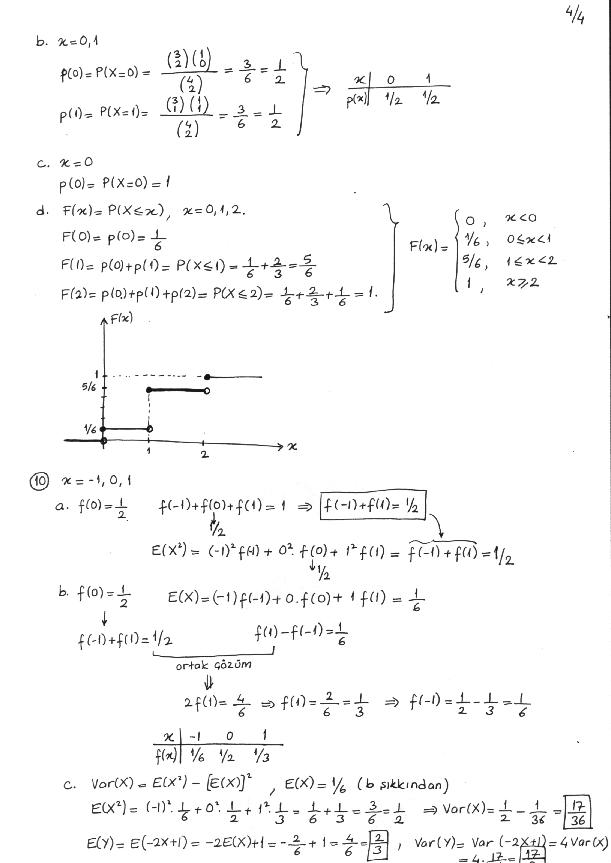 4/4
b. x=0,1
p(0)= P(X=0) = (3 2)(1 0) / (4 2) = 3/6 = 1/2 ⇒ x | 0 1
p(1)= P(X=1)= (3 1)(1 1) / (4 2) = 3/6 = 1/2 p(x) | 1/2 1/2
c. x=0
p(0)= P(X=0)=1
d. F(x)= P(X≤x), x=0,1,2.
F(0)= p(0)= 1/6
F(1)= p(0)+p(1)= P(X≤1)= 1/6 + 2/3 = 5/6
F(2)= p(0)+p(1)+p(2)= P(X≤2)= 1/6 + 2/3 + 1/6 = 1.
F(x)= { 0, x<0
1/6, 0≤x<1
5/6, 1≤x<2
1, x≥2
F(x)
1
5/6
1/6
1 2 x
10 x=-1,0,1
a. f(0)=1/2 f(-1)+f(0)+f(1)=1 ⇒ f(-1)+f(1)=1/2
1/2
E(X²)= (-1)² f(1) + 0². f(0)+ 1² f(1) = f(-1)+f(1) = 1/2
1/2
b. f(0)=1/2 E(X)=(-1)f(-1)+0.f(0)+ 1 f(1) = 1/6
f(-1)+f(1)=1/2 f(1)-f(-1)=1/6
ortak çözüm
2f(1)= 4/6 ⇒ f(1)= 2/6 = 1/3 ⇒ f(-1)= 1/2 - 1/3 = 1/6
x | -1 0 1
f(x) | 1/6 1/2 1/3
c. Var(X) = E(X²) - [E(X)]², E(X)=1/6 (b şıkkından)
E(X²)= (-1)². 1/6 + 0². 1/2 + 1². 1/3 = 1/6 + 1/3 = 3/6 = 1/2 ⇒ Var(X)= 1/2 - 1/36 = 17/36
E(Y)= E(-2X+1) = -2E(X)+1 = -2/6 + 1 = 4/6 = 2/3 , Var(Y)= Var (-2X+1)= 4 Var(X)
= 4. 17